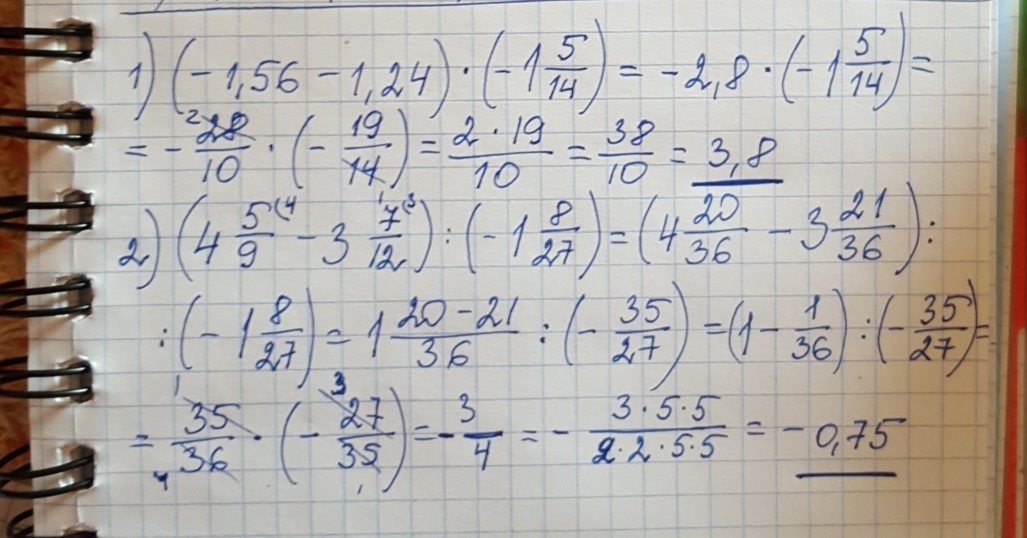 1) (-1,56 - 1,24) · (-1 5/14) = -2,8 · (-1 5/14) =
= - 28/10 · (- 19/14) = 2·19/10 = 38/10 = 3,8
2) (4 5/9 - 3 7/12) : (-1 8/27) = (4 20/36 - 3 21/36) :
: (-1 8/27) = 1 20-21/36 : (- 35/27) = (1 - 1/36) : (- 35/27) =
= 35/36 · (- 27/35) = - 3/4 = - 3·5·5/2·2·5·5 = - 0,75